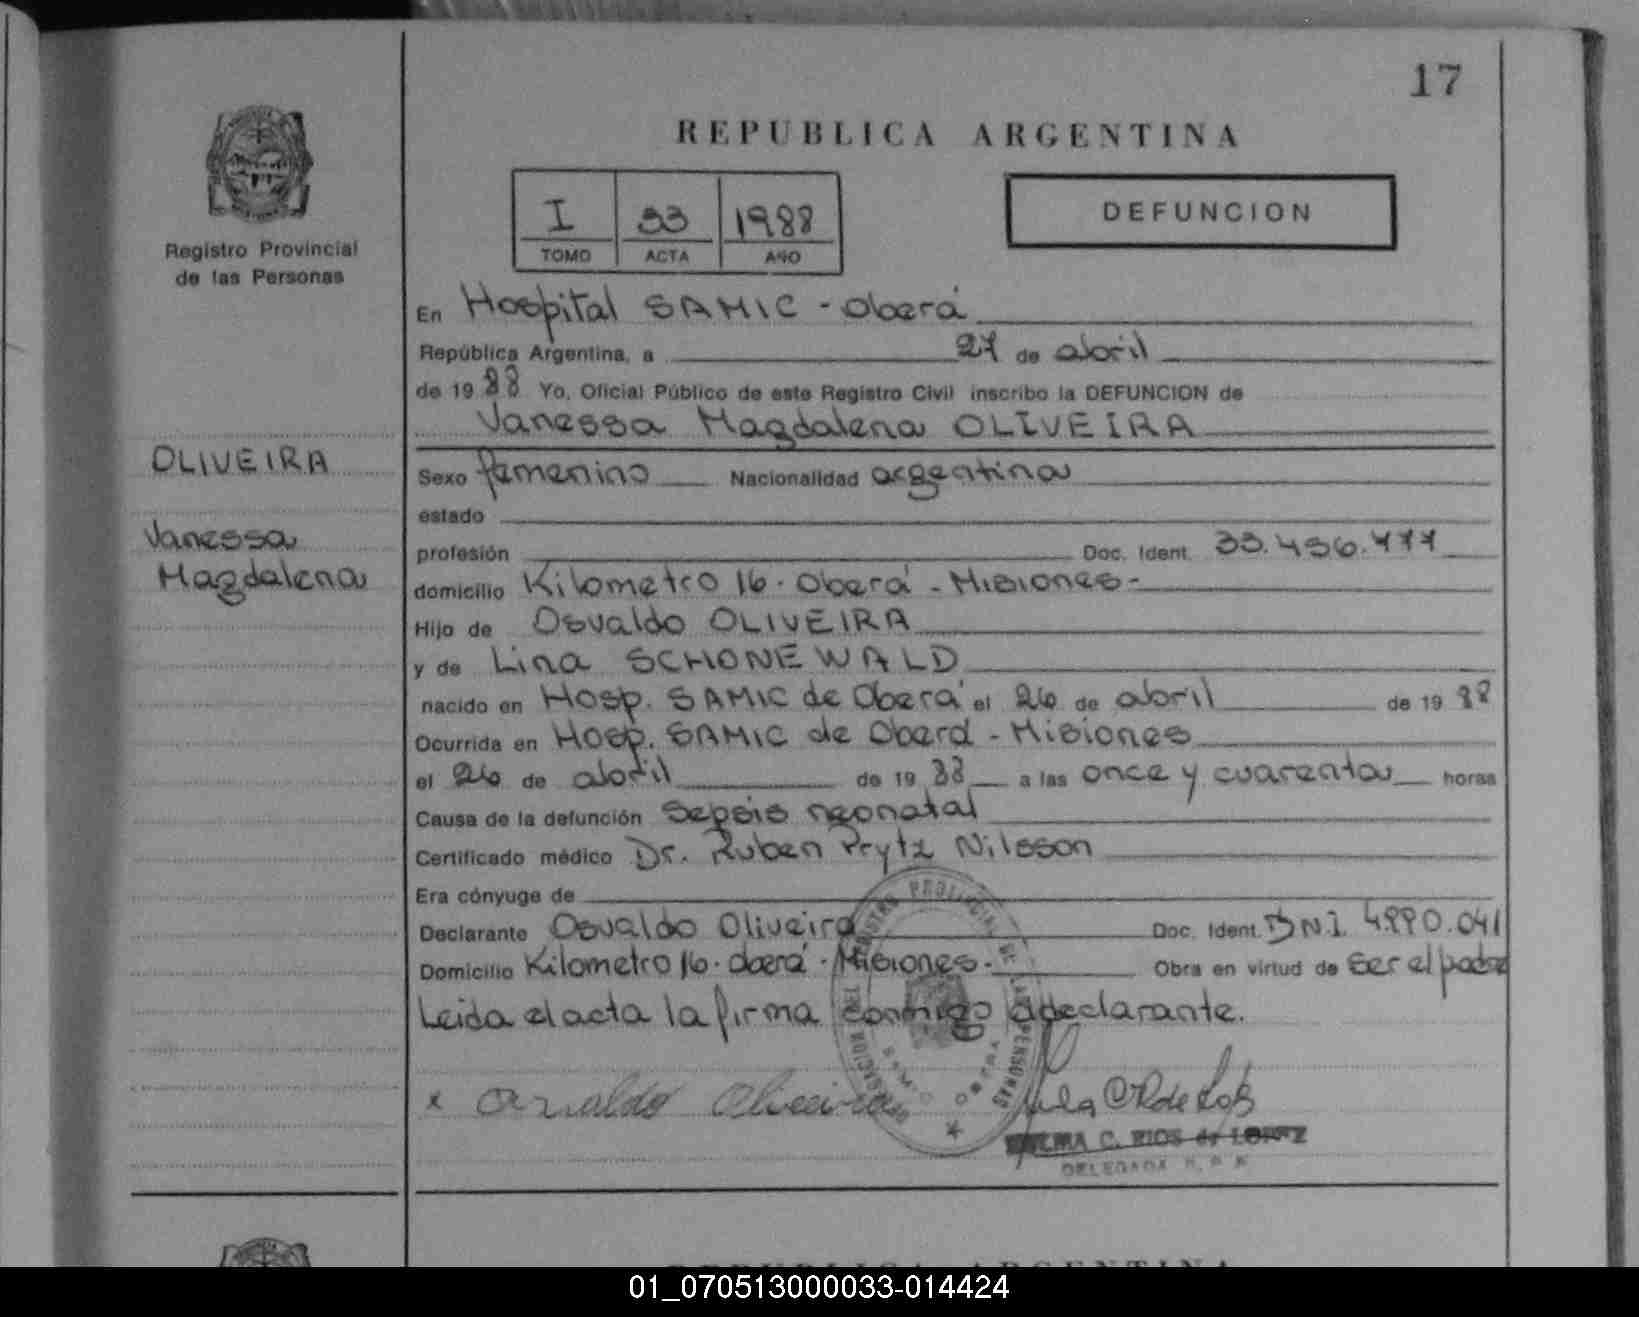 17
REPUBLICA ARGENTINA
Registro Provincial
de las Personas
I 33 1988
TOMO ACTA AÑO
DEFUNCION
En Hospital SAMIC - Oberá
República Argentina, a 27 de abril
de 1988 Yo, Oficial Público de este Registro Civil inscribo la DEFUNCION de
Vanessa Magdalena OLIVEIRA
OLIVEIRA
Vanessa
Magdalena
Sexo femenino Nacionalidad argentina
estado
profesión Doc. Ident. 33.456.477
domicilio Kilometro 16. Oberá - Misiones-
Hijo de Osvaldo OLIVEIRA
y de Lina SCHONEWALD
nacido en Hosp. SAMIC de Oberá el 26 de abril de 1988
Ocurrida en Hosp. SAMIC de Oberá - Misiones
el 26 de abril de 1988 a las once y cuarenta horas
Causa de la defunción Sepsis neonatal
Certificado médico Dr. Ruben Prytz Nilsson
Era cónyuge de
Declarante Osvaldo Oliveira Doc. Ident. DNI. 4.990.041
Domicilio Kilometro 16. Oberá. Misiones.- Obra en virtud de ser el padre
Leida el acta la firma conmigo el declarante.
x Osvaldo Oliveira
C. RIOS de LOPEZ
DELEGADA R. P. P.
REGISTRO PROVINCIAL DE LAS PERSONAS
REPUBLICA ARGENTINA
01_070513000033-014424